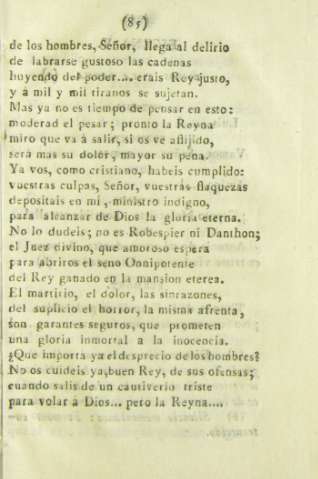 (85)
de los hombres, Señor, llega al delirio
de labrarse gustoso las cadenas
huyendo del poder.... erais Rey justo,
y á mil y mil tiranos se sujetan.
Mas ya no es tiempo de pensar en esto:
moderad el pesar; pronto la Reyna
miro que va á salir, si os ve aflijido,
será mas su dolor, mayor su pena.
Ya vos, como cristiano, habeis cumplido:
vuestras culpas, Señor, vuestras flaquezas
depositais en mi, ministro indigno,
para alcanzar de Dios la gloria eterna.
No lo dudeis; no es Robespier ni Danthon;
el Juez divino, que amoroso espera
para abriros el seno Omnipotente
del Rey ganado en la mansion eterea.
El martirio, el dolor, las sinrazones,
del suplicio el horror, la misma afrenta,
son garantes seguros, que prometen
una gloria inmortal á la inocencia.
¿Que importa ya el desprecio de los hombres?
No os cuideis ya, buen Rey, de sus ofensas;
cuando salis de un cautiverio triste
para volar á Dios... pero la Reyna....